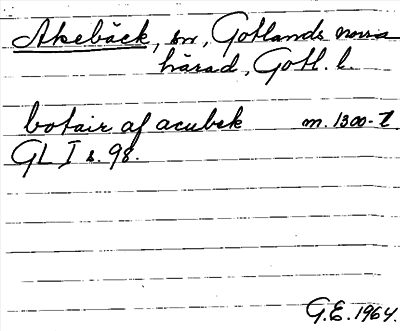 Akebäck, sn, Gotlands norra
härad, Gotl. l.
botair af acubek m. 1300-t
GL I s. 98.
G.E. 1964.